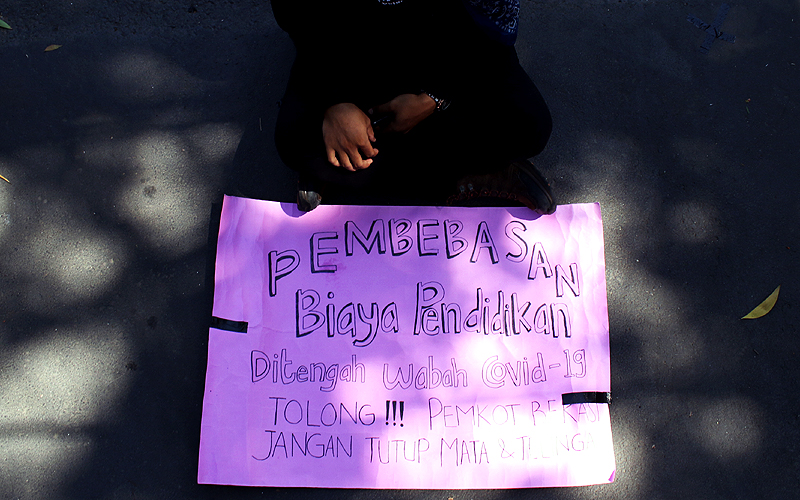 PEMBEBASAN
Biaya Pendidikan
Ditengah wabah Covid-19
TOLONG!!! PEMKOT BEKASI
JANGAN TUTUP MATA &